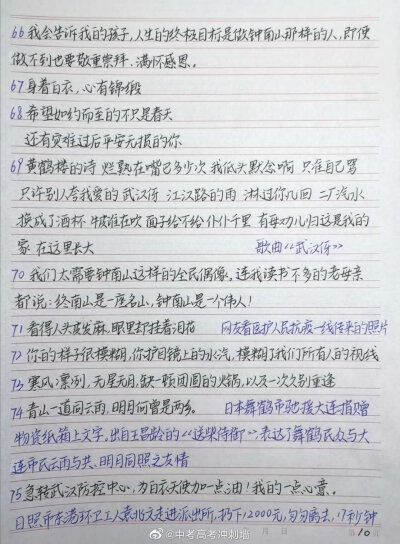 66 我会告诉我的孩子,人生的终极目标是做钟南山那样的人,即便
做不到也要敬重崇拜、满怀感恩。
67 身着白衣,心有锦缎
68 希望如约而至的不只是春天
还有灾难过后平安无报的你
69 黄鹤楼的诗 烂熟在嘴巴多少次 我低头默念啊 只准自己骂
只许别人夸我爱的 武汉伢 江汉路的雨 淋过你几回 二厂汽水
换成了酒杯 牛皮谁在吹 面子给不给 仆仆千里 有母幼儿归这是我的
家 在这里长大 歌曲《武汉伢》
70 我们太需要钟南山这样的全民偶像。连我读书不多的老母亲
都说:终南山是一座名山,钟南山是一个伟人!
71 看得人头皮发麻,眼里打转着泪花 网友看医护人员抗疫一线传来的照片
72 你的样子很模糊,你护目镜上的水汽,模糊了我们所有人的视线
73 寒风凛冽,无星无月,缺一顿团圆的火锅,以及一次久别重逢
74 青山一道同云雨,明月何曾是两乡。 日本舞鹤市驰援大连捐赠
物资纸箱上文字,出自王昌龄的《送柴侍御》表达了舞鹤民众与大
连市民云雨与共、明月同照之友情
75 急转武汉防控中心,为白衣天使加一点油!我的一点心意。
日照市东港环卫工人袁兆文走进派出所,扔下12000元,匆匆离去,17秒钟
10
@中考高考冲刺墙